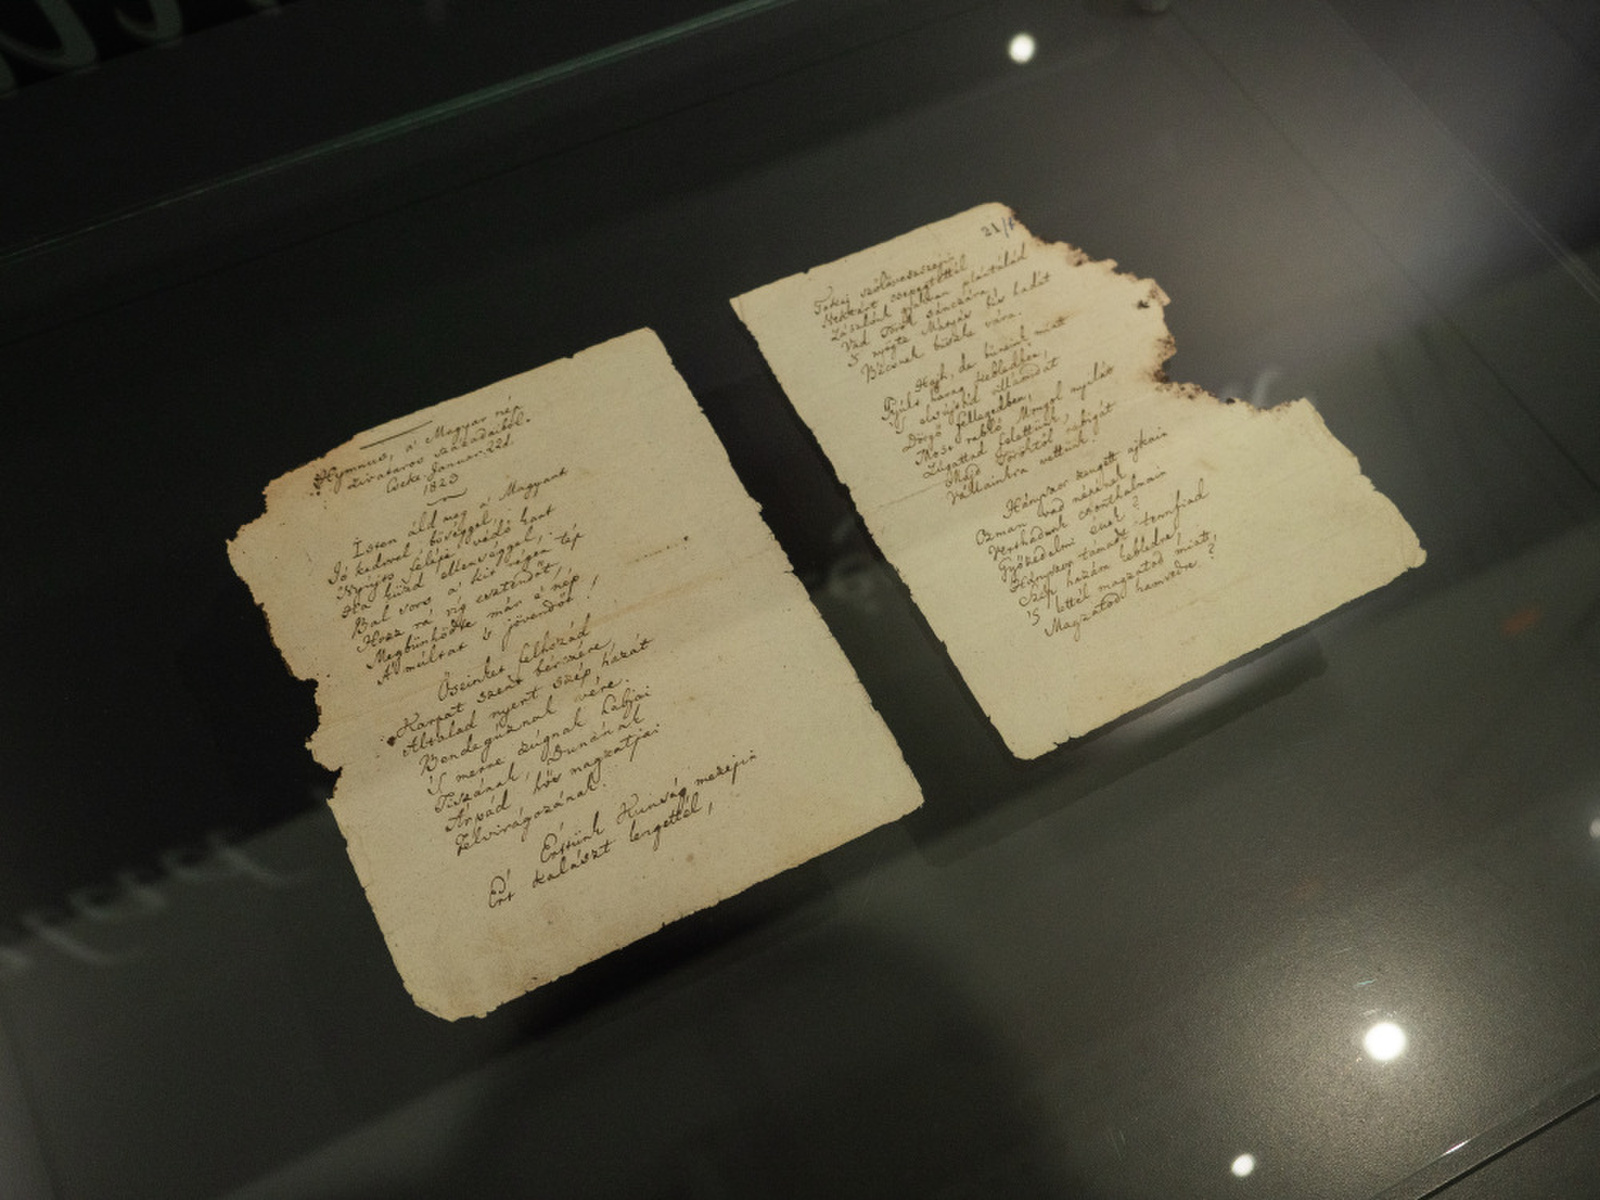 Hymnus, a' Magyar nép
zivataros századaiból.
Cseke. Januar. 22d.
1823
Isten áld meg a' Magyart
Jó kedvvel, bőséggel,
Nyújts feléje védő kart
Ha küzd ellenséggel;
Bal sors a' kit régen tép
Hozz rá víg esztendőt,
Megbünhődte már e' nép
A' múltat 's jövendőt!
Őseinket felhozád
Kárpát szent bérczére
Általad nyert szép hazát
Bendegúznak vére.
'S merre zúgnak habjai
Tiszának, Dunának
Árpád hős magzatjai
Felvirágozának.
Értünk Kunság mezején
Ért kalászt lengettél,
21/
Tokaj szőlővesszején
Nektárt csepegtettél.
Zászlónk gyakran plántálád
Vad Török sánczára,
'S nyögte Mátyás bús hadát
Bécsnek büszke vára.
Hajh, de bűneink miatt
Gyúlt harag kebledben,
'S elsújtád villámidat
Dörgő fellegedben,
Most rabló Mongol nyilát
Zúgattad felettünk,
Majd Töröktől rabigát
Vállainkra vettünk.
Hányszor zengett ajkain
Ozman vad népének
Vert hadunk csonthalmain
Győzedelmi ének?
Hányszor támadt tennfiad
Szép hazám kebledre
'S lettél magzatod miatt,
Magzatod hamvedre?